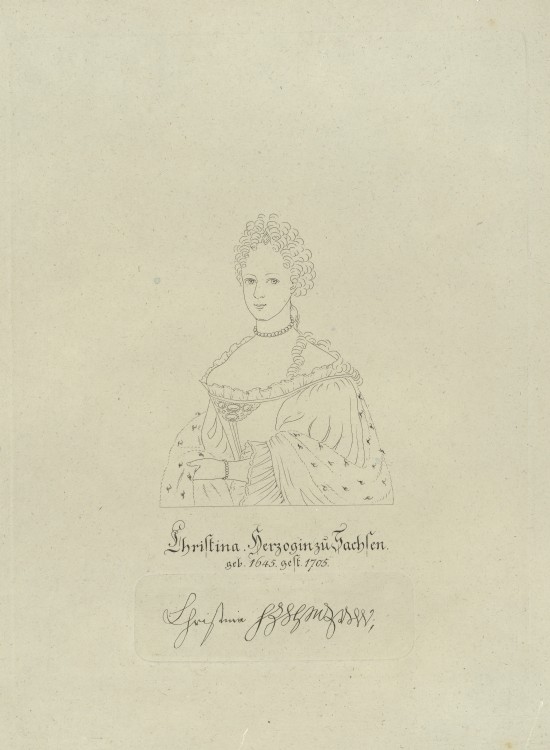 Christina. Herzogin zu Sachsen.
geb. 1645. gest. 1705.
Christina